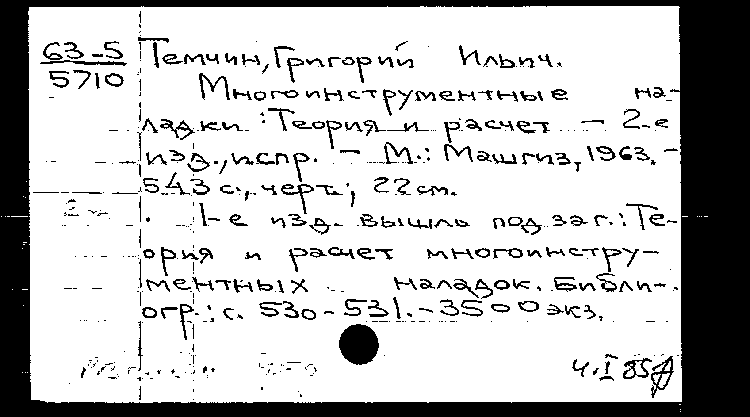 63-5
5710
Темчин, Григорий Ильич.
Многоинструментные на-
ладки : Теория и расчет. — 2-е
изд., испр. — М.: Машгиз, 1963. —
543 с., черт.; 22 см.
1-е изд. вышло под заг.: Те-
ория и расчет многоинстру-
ментных наладок. Библи-
огр.: с. 530-531. — 3500 экз.
4.I 85